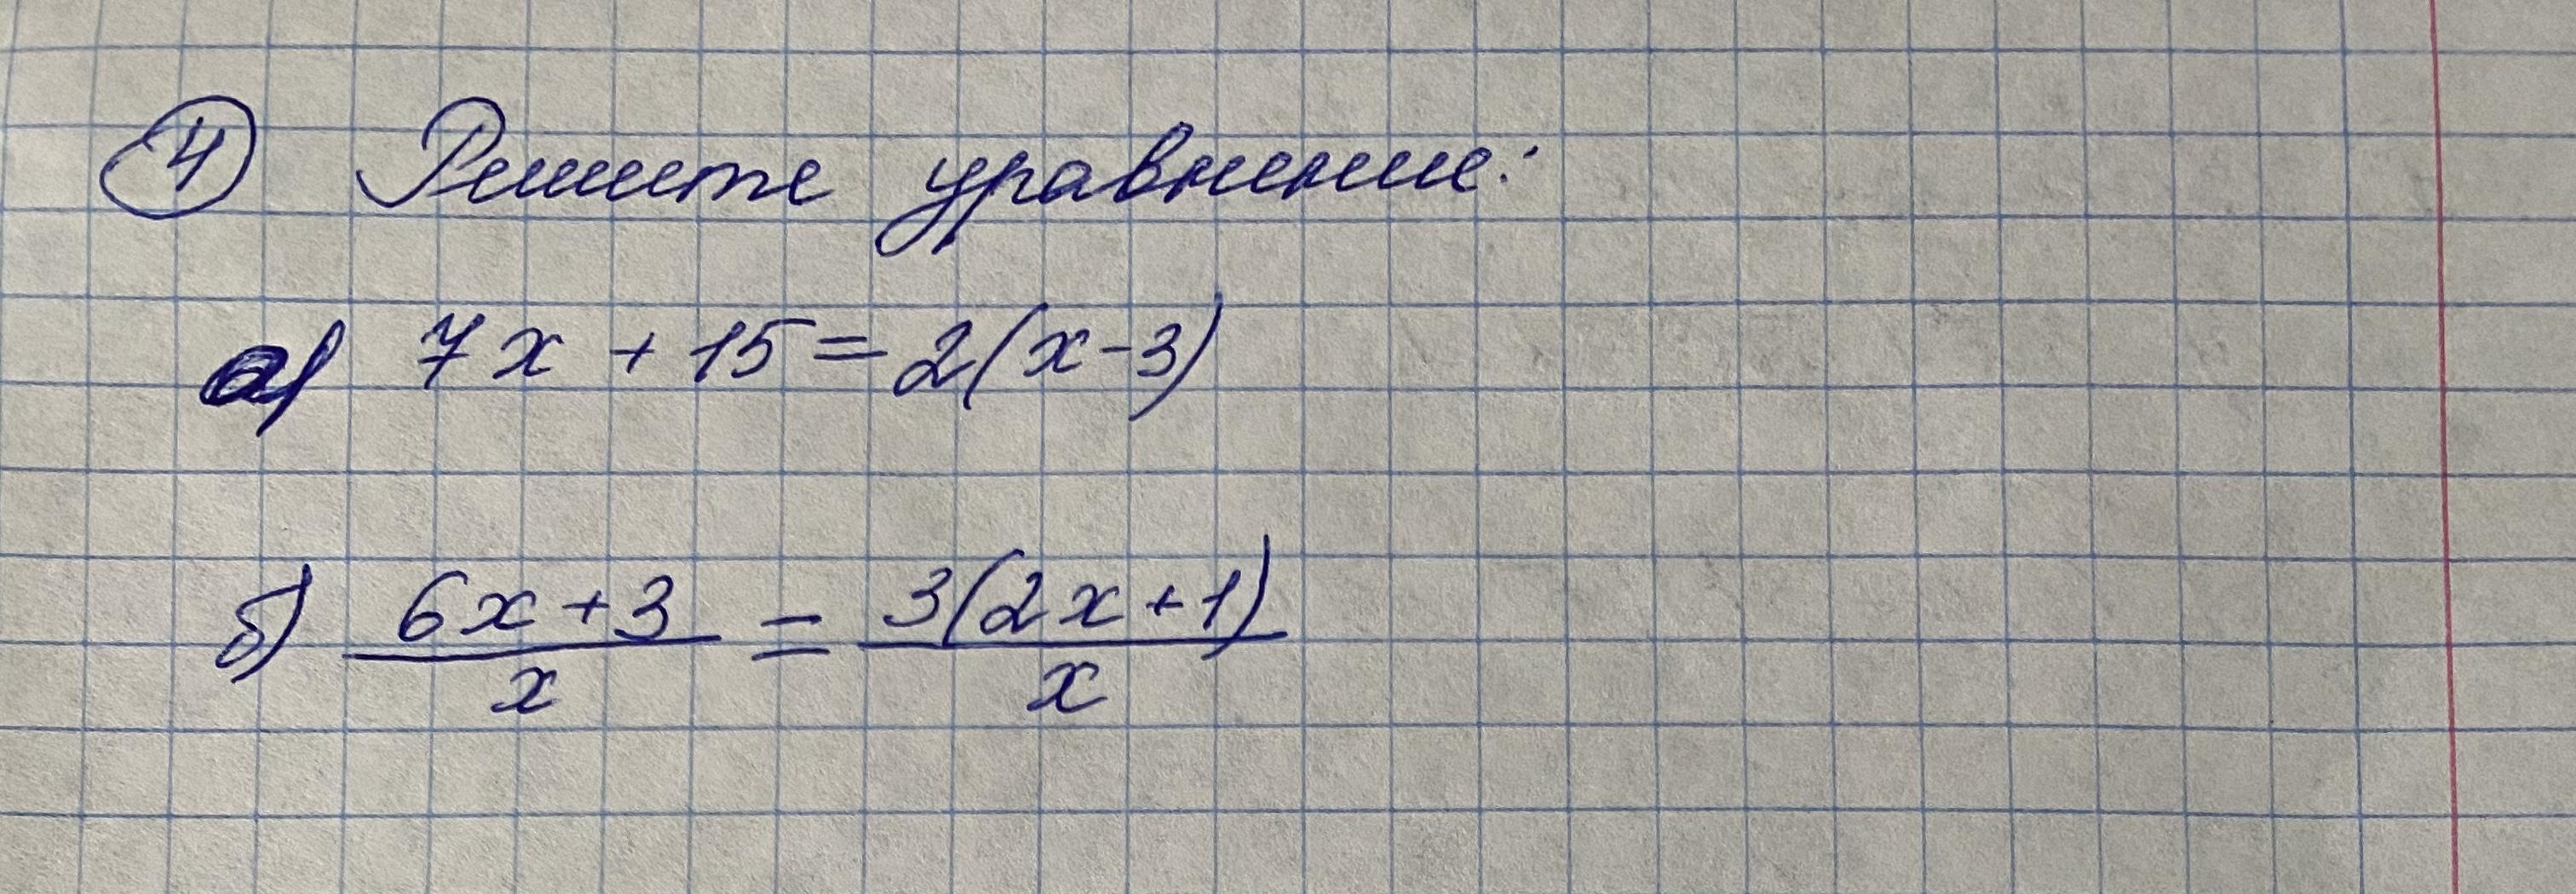 4 Решите уравнение:
а) 7x + 15 = 2(x - 3)
б) (6x + 3)/x = 3(2x + 1)/x